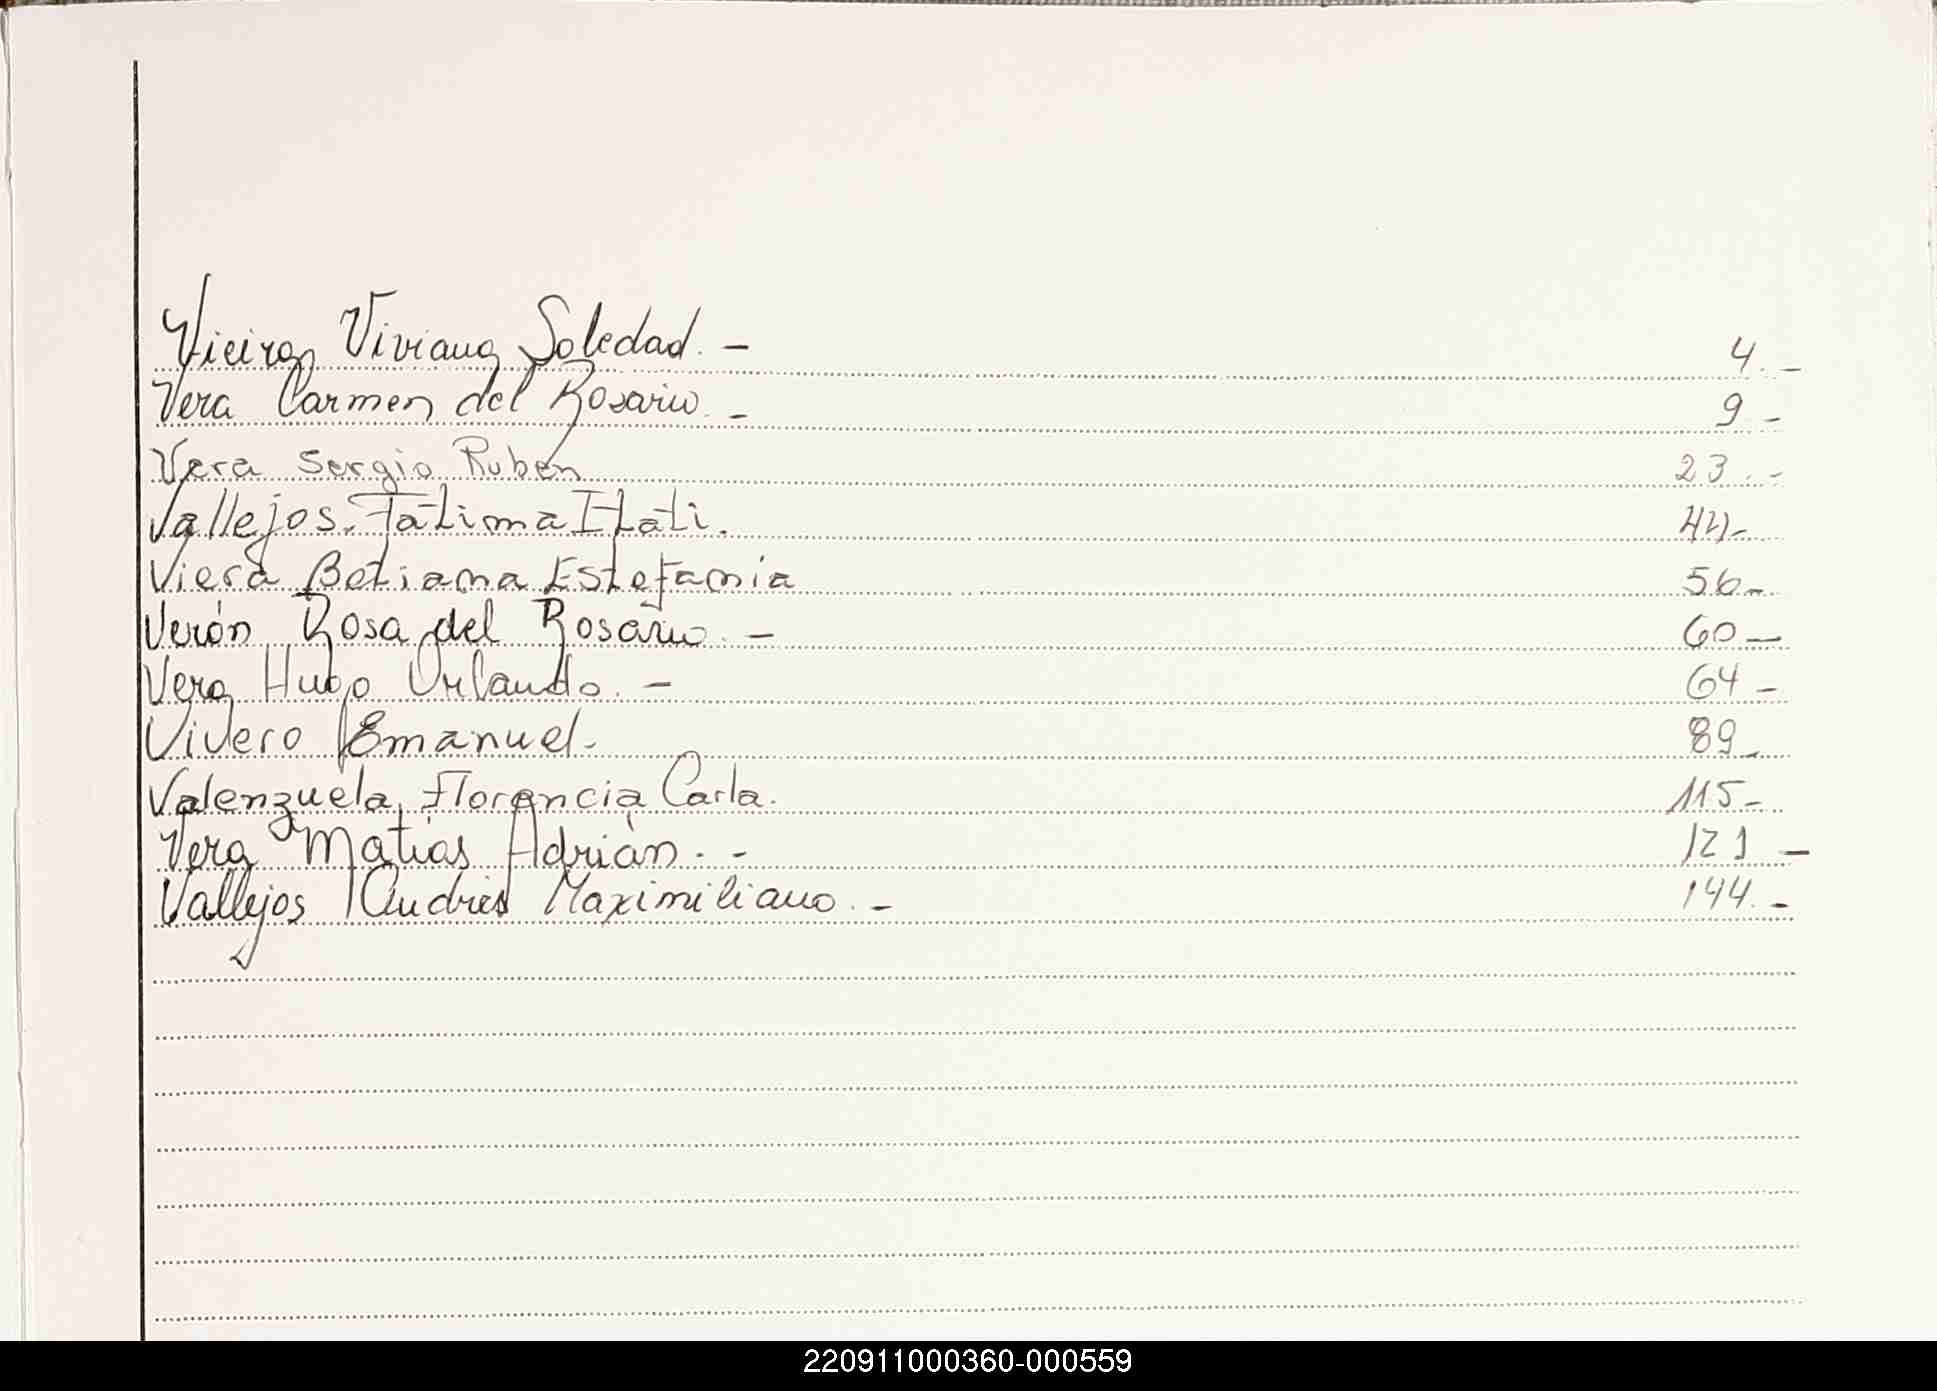 Vieira, Viviana Soledad. - 4. -
Vera Carmen del Rosario. - 9 -
Vera Sergio Ruben 23. -
Vallejos, Fátima Itati. 44-
Viera Betiana Estefania 56-
Verón Rosa del Rosario. - 60-
Vera Hugo Orlando. - 64 -
Vivero Emanuel. 89-
Valenzuela, Florencia Carla. 115-
Vera Matías Adrián. - 121 -
Vallejos Andrés Maximiliano. - 144. -
220911000360-000559